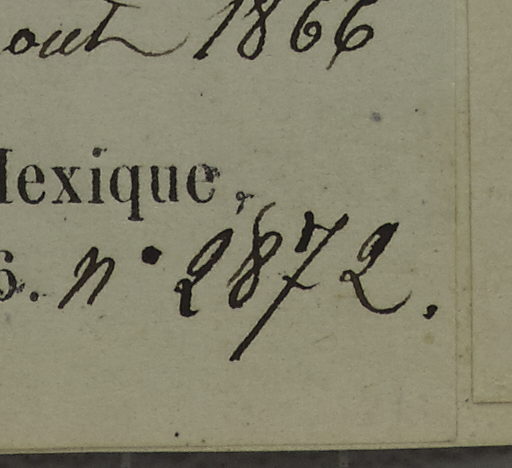 out 1866
Mexique,
6. n° 2872.